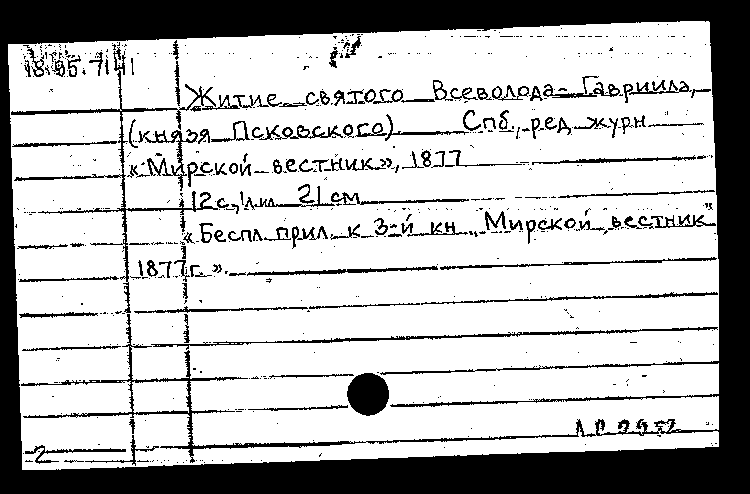 Житие святого Всеволода-Гавриила,
(князя Псковского) Спб., ред. журн
«Мирской вестник», 1877
12 с., 1 л. ил. 21 см
«Беспл. прил. к 3-й кн „Мирской вестник"
1877 г.».
2